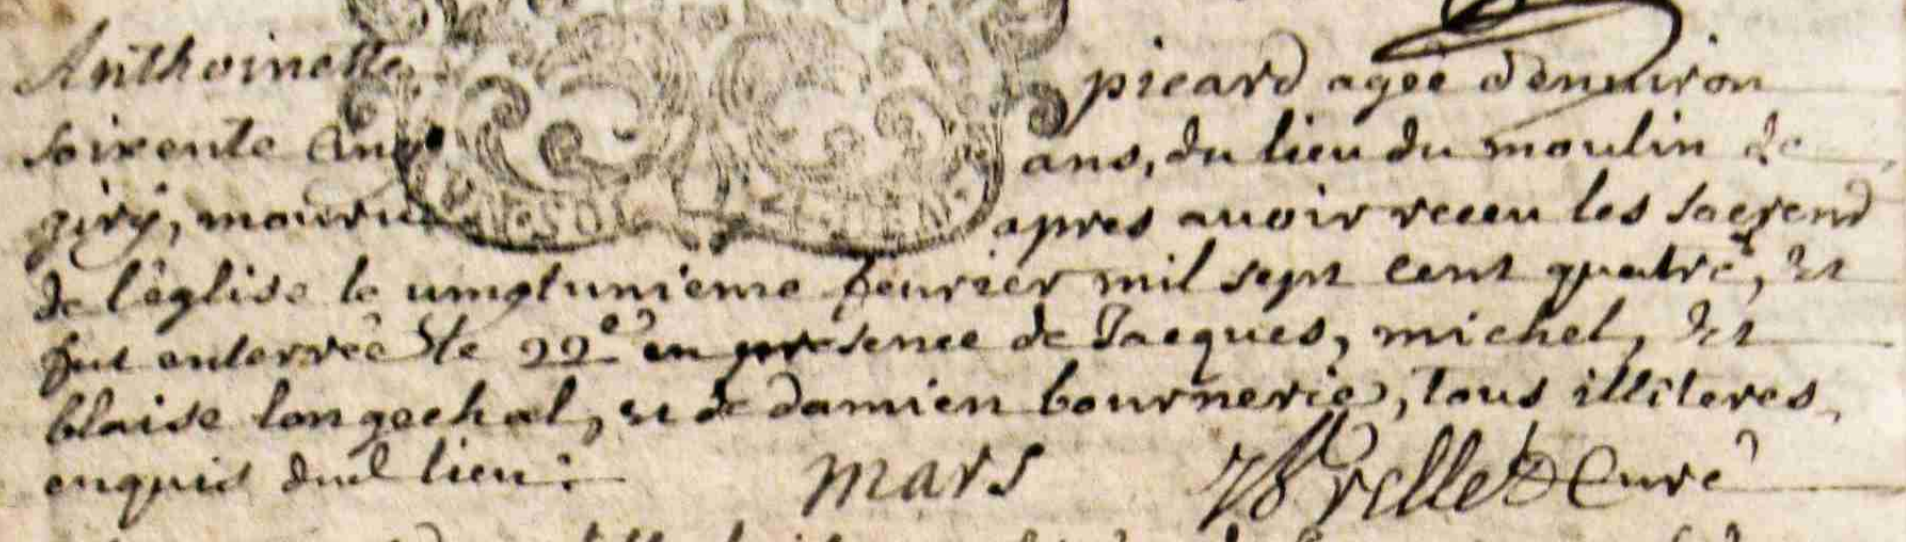 Anthoinette picard agée denuiron
soixente Cinq ans, du lieu du moulin de
giry, mourut apres auoir receu les sacrend
de l'églisé le uingtunieme feurier mil sept cent quatre, et
fut enterrée le 22e en presence de Jacques, michel, et
blaise longechal, et de damien bournerie, tous illiteres
enquis dud lieu :
mars Curé